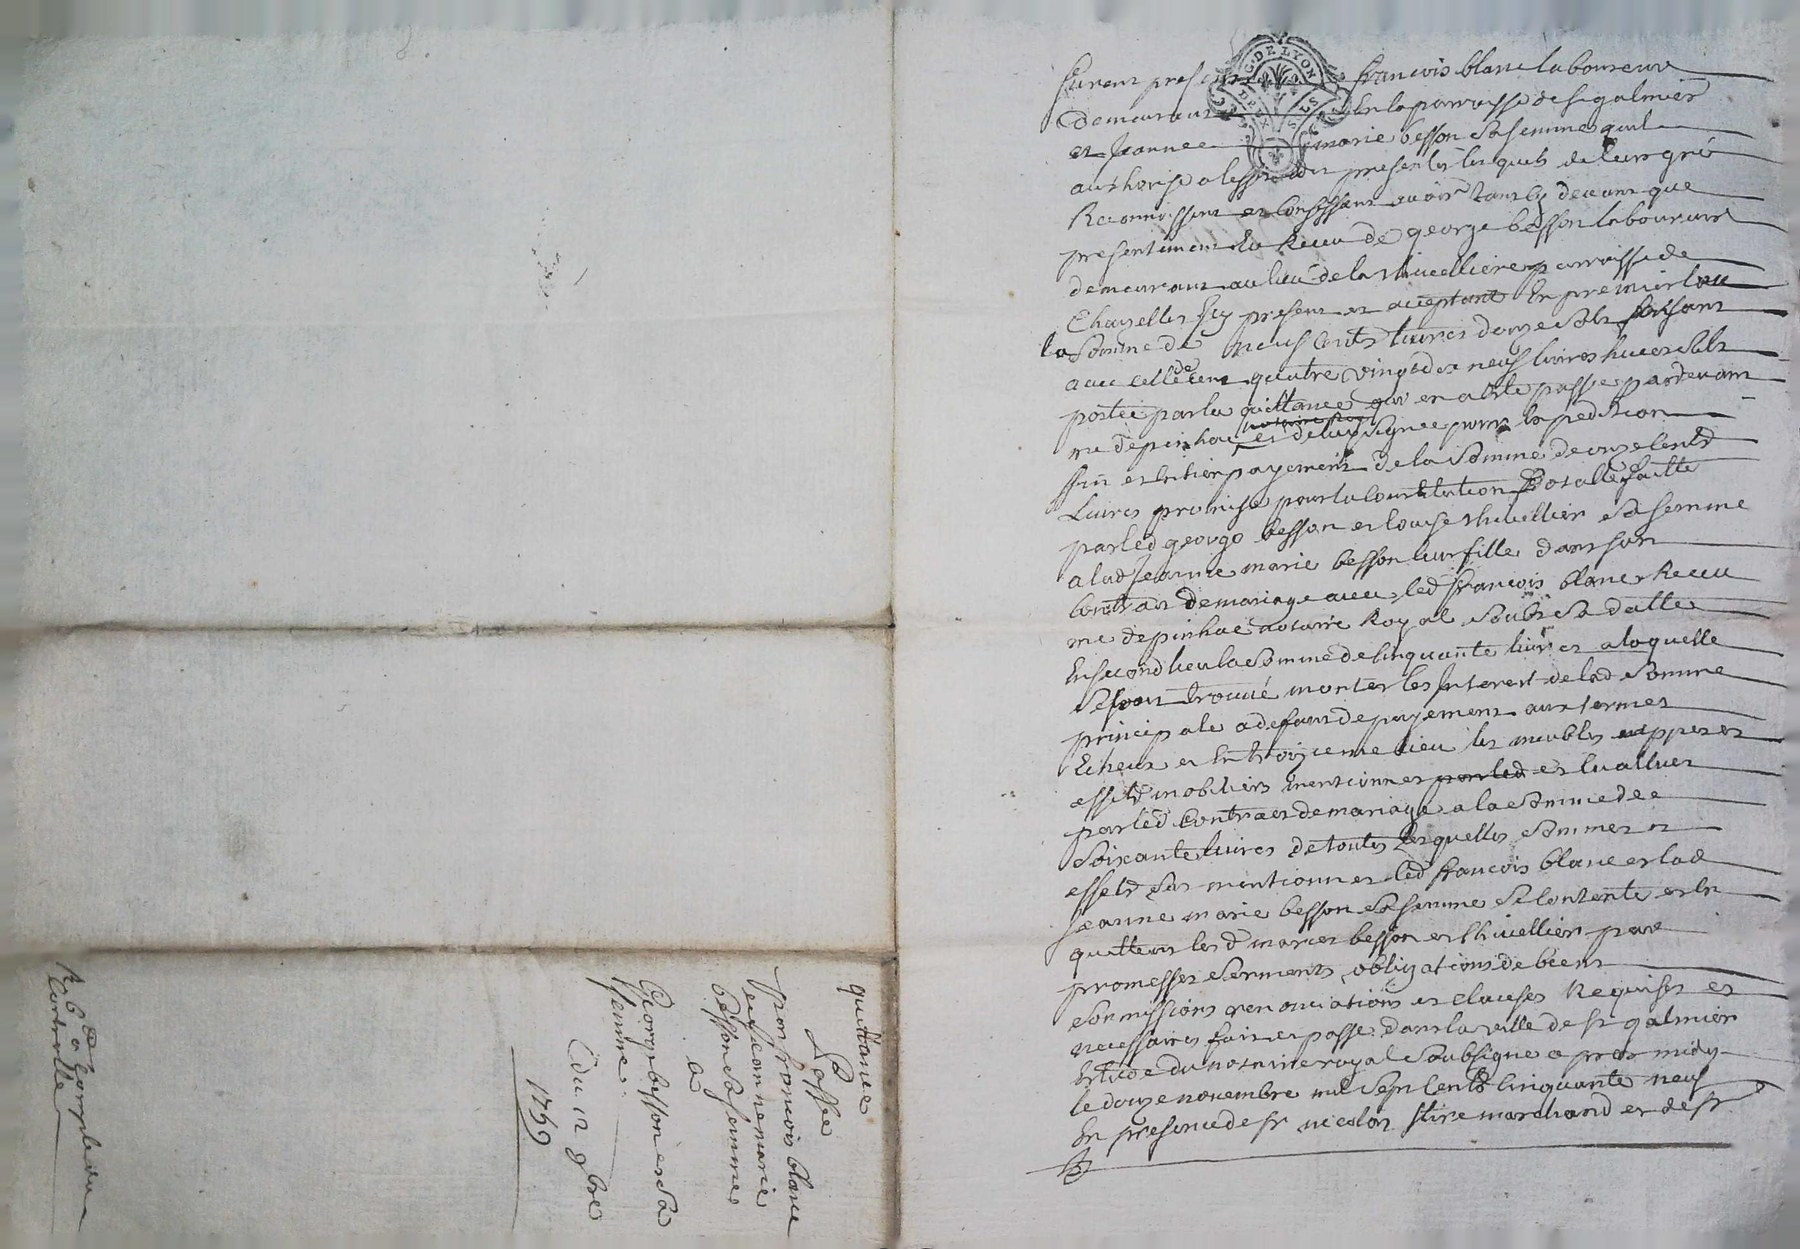 G. DE LYON
DEUX SOLS
furent presents françois blanc laboureur
demeurant en la parroisse de st galmier
et Jeanne marie besson sa femme quil
authorise a leffet des presentes lesquels de leur gré
Reconnoissent et confessent avoir tant cy devant que
presentement eu Receu de george besson laboureur
demeurant au lieu de la thivellière parroisse de
Chazelles Icy present et acceptant En premier lieu
la somme de neuf cents livres douze sols faisant
avec celle de cent quatre vingt dix neuf livres huit sols
portée par la quittance qui en a été passée pardevant
me depinhac notaire Roy et deluy signée pour Expedition
fin et Entier payement de la somme de onze cents
Livres promise pour la Constitution Dotalle faitte
par led george besson et louise thivellier sa femme
a lad Jeanne marie besson leur fille dans son
Contrat de mariage avec led françois blanc Receu
me depinhac notaire Royal soubs sa datte
En second lieu la somme de Cinquante livres a laquelle
se sont trouvé monter les Interest de lad somme
principale a defaut de payement aux termes
Echeus et En troizieme lieu les meubles et
effets mobiliers mentionnes par led et Evallues
par led Contrat de mariage a la somme de
soixante livres de toutes lesquelles sommes et
effets sus mentionnes led françois blanc et lad
Jeanne marie besson sa femme se Contente et En
quittent les d maries besson et thivellier par
promesses serments obligations de biens
sommissions renonciations et clauses Requises et
necessaires fait et passé dans la ville de st galmier
Etude du notaire royal soubsigné apres midy
le douze novembre mil sept Cents Cinquante neuf
En presence de sr nicolas stire marchand et de sr
quittance
Passée
par francois blanc
et Jeanne marie
besson sa femme
a
George besson et sa
femme
du 12 9bre
1759